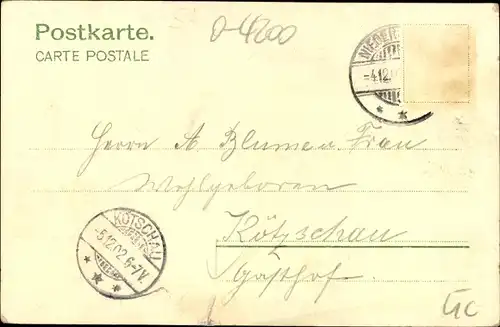 Postkarte.
CARTE POSTALE
D-4200
NIEDER
-4.12.02
Herrn A. Blume u. Frau
Wohlgeboren
Kötzschau
Gasthof.
KÖTSCHAU
-5.12.02. 6-7V.
GC